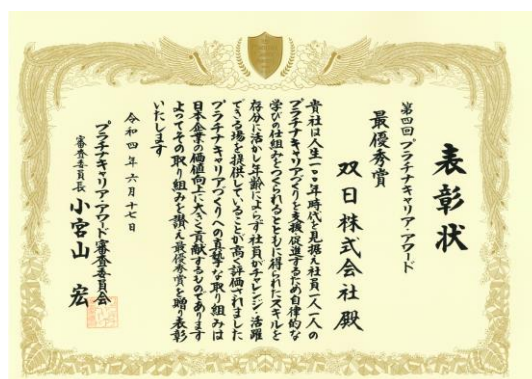 表彰状
第四回 プラチナキャリア・アワード
最優秀賞
双日株式会社殿
貴社は人生一〇〇年時代を見据え社員一人一人の
プラチナキャリアづくりを支援・促進するため自律的な
学びの仕組みをつくられるとともに得られたスキルを
存分に活かし年齢によらず社員がチャレンジ・活躍
できる場を提供していることが高く評価されました
プラチナキャリアづくりへの真摯な取り組みは
日本企業の価値向上に大きく貢献するものであります
よってその取り組みを讃え最優秀賞を贈り表彰
いたします
令和四年六月十七日
プラチナキャリア・アワード審査委員会
審査委員長 小宮山 宏